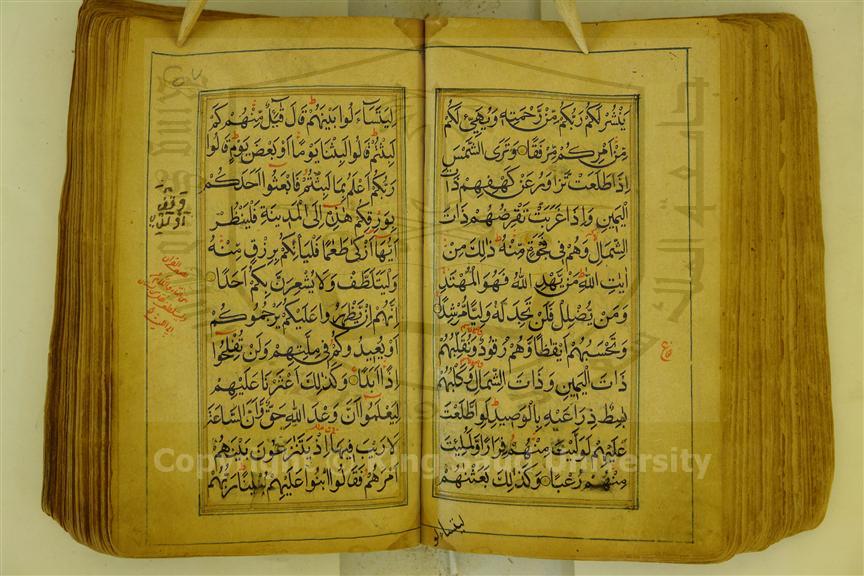 ينشر لكم ربكم من رحمته ويهيئ لكم
من امركم مرفقا وترى الشمس
اذا طلعت تزاور عن كهفهم ذات
اليمين واذا غربت تقرضهم ذات
الشمال وهم في فجوة منه ذلك من
ايت الله من يهد الله فهو المهتد
ومن يضلل فلن تجد له وليا مرشدا
وتحسبهم ايقاظا وهم رقود ونقلبهم
ذات اليمين وذات الشمال وكلبهم
بسط ذراعيه بالوصيد لو اطلعت
عليهم لوليت منهم فرارا ولملئت
منهم رعبا وكذلك بعثنهم
ليتساءلوا
ليتساءلوا بينهم قال قائل منهم كم
لبثتم قالوا لبثنا يوما او بعض يوم قالوا
ربكم اعلم بما لبثتم فابعثوا احدكم
بورقكم هذه الى المدينة فلينظر
ايها ازكى طعاما فلياتكم برزق منه
وليتلطف ولا يشعرن بكم احدا
انهم ان يظهروا عليكم يرجموكم
او يعيدوكم في ملتهم ولن تفلحوا
اذا ابدا وكذلك اعثرنا عليهم
ليعلموا ان وعد الله حق وان الساعة
لا ريب فيها اذ يتنزعون بينهم
امرهم فقالوا ابنوا عليهم بنينا ربهم
٥٧
Copyright © King Saud University